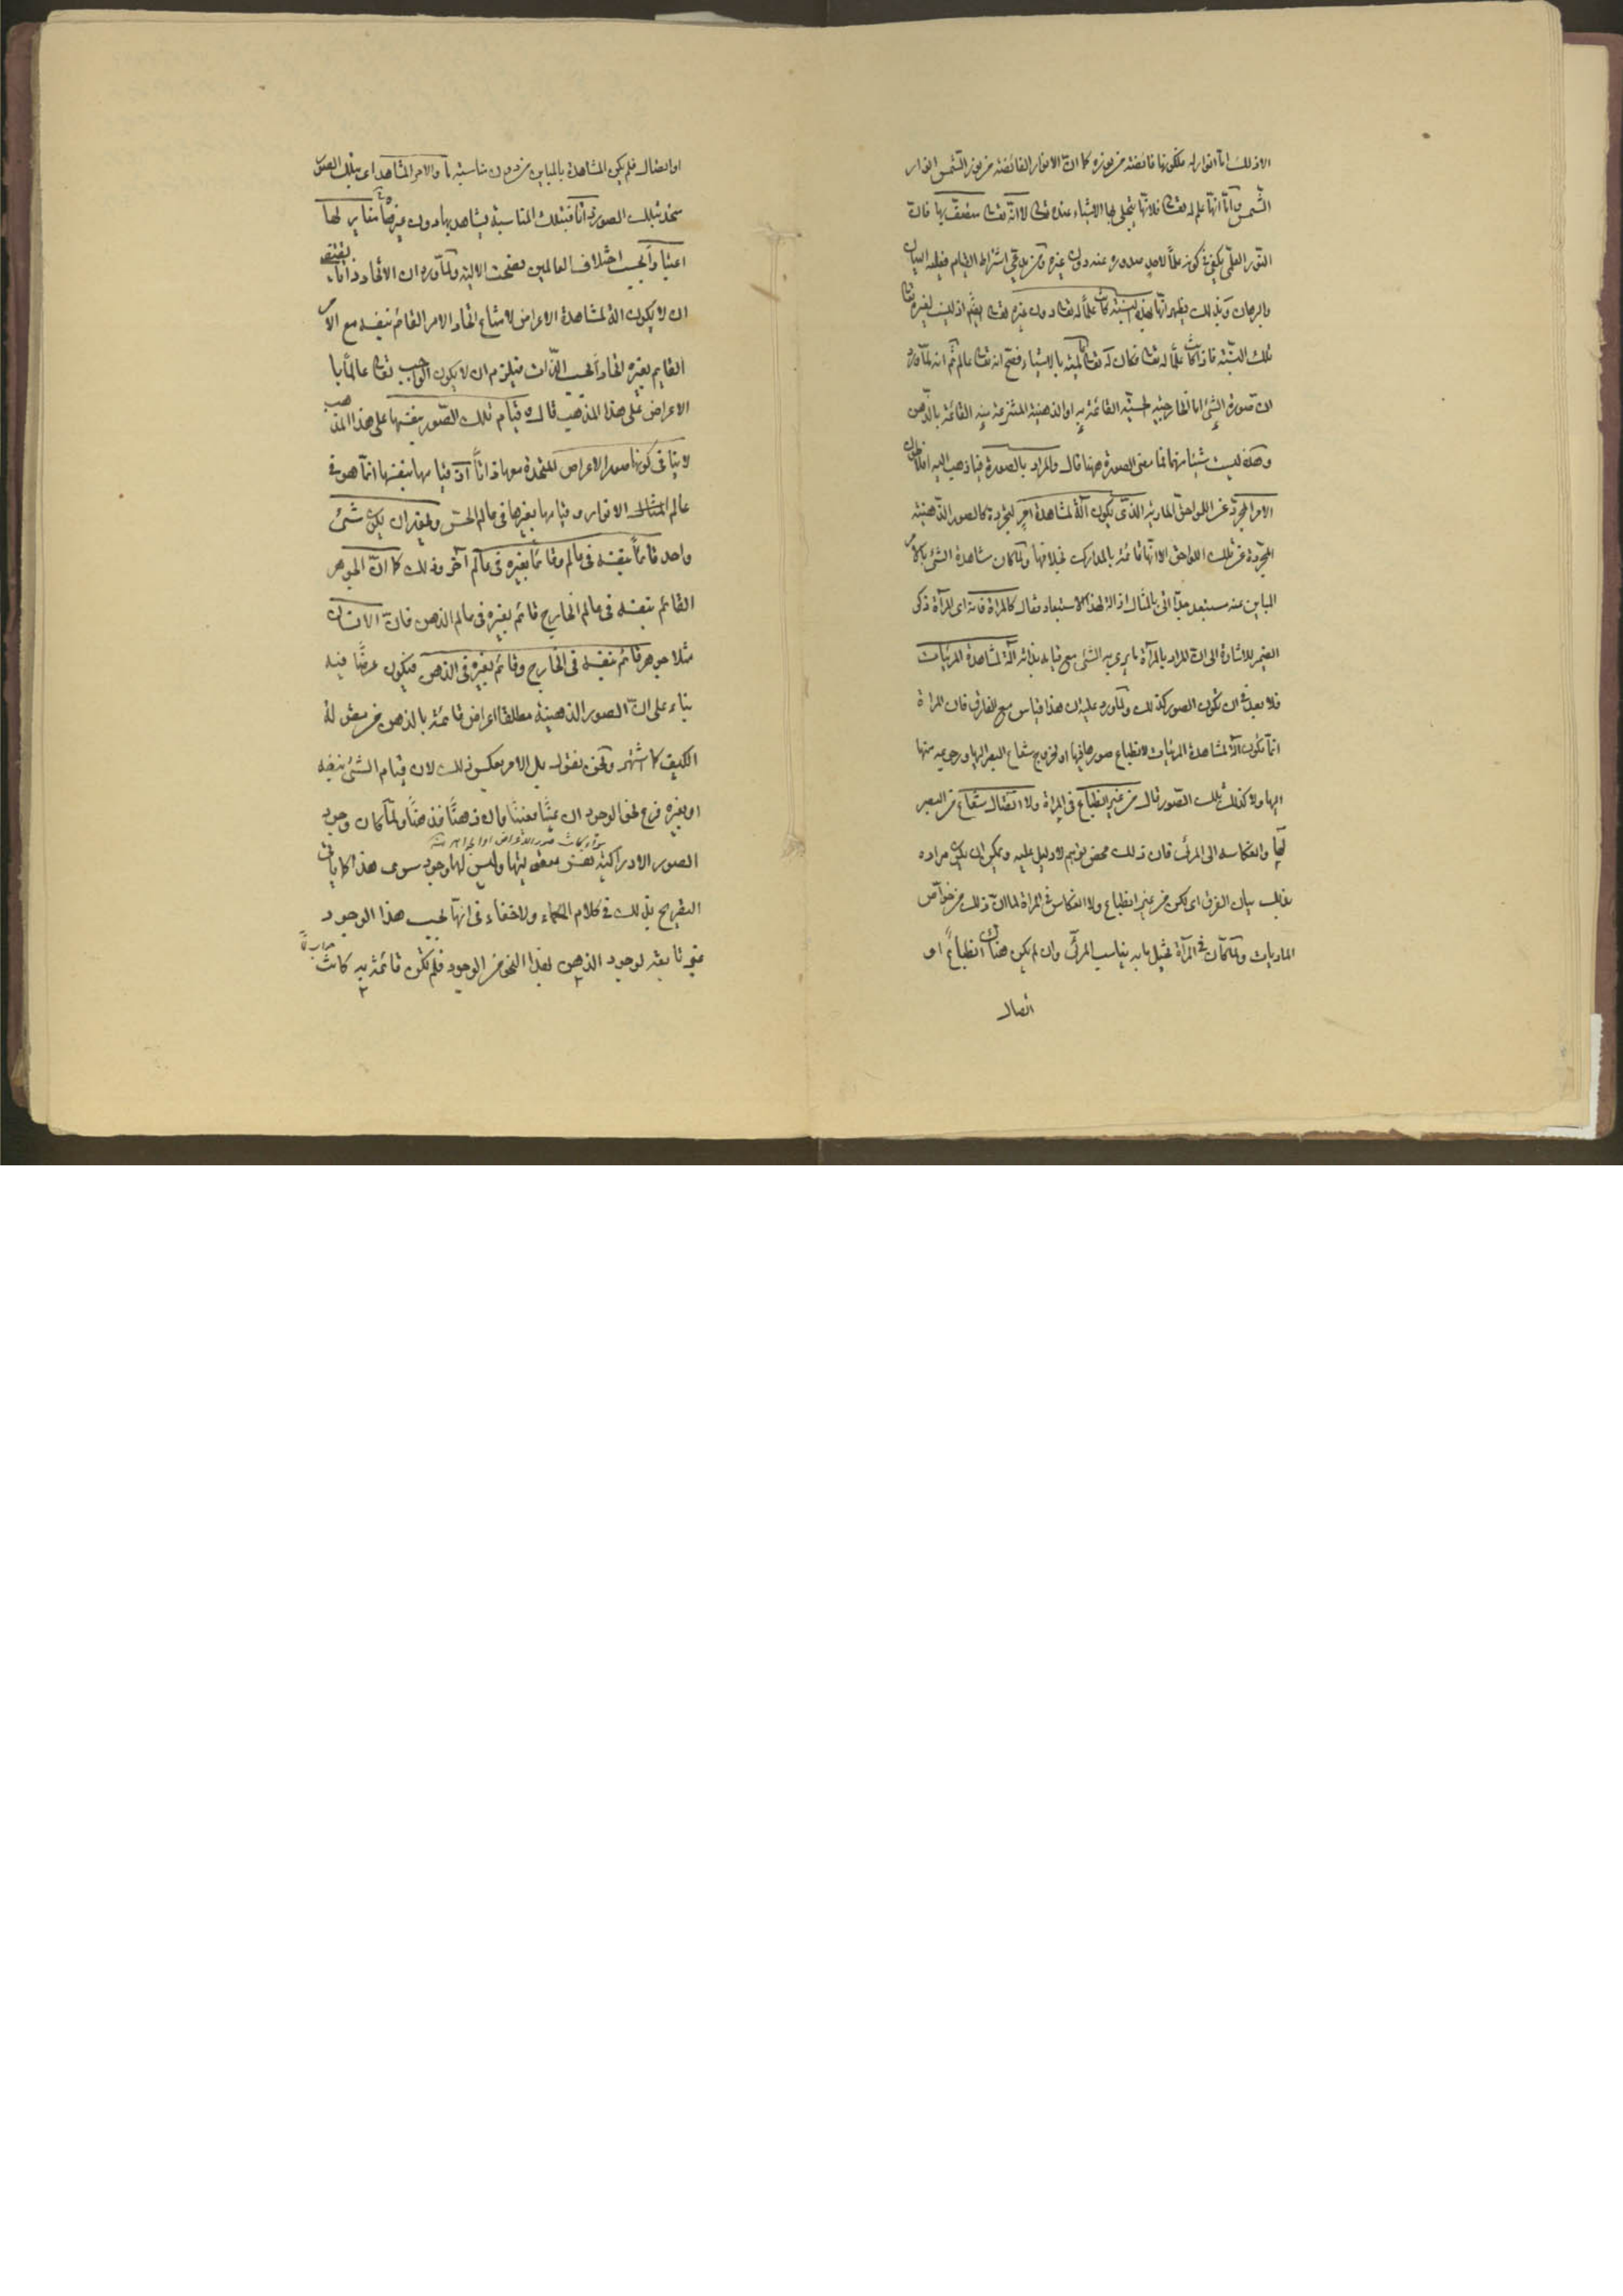 الا ذلك اما انها نور له فلكونها فائضة من نوره كما ان الانوار الفائضة من نور الشمس انوار
الشمس واما انها علم له تعالى فلانها ينجلى بها الاشياء عنده تعالى لا انه تعالى متصف بها فان
النور العلمى يكفى فى كونه علماً لاحد صدوره عنه دون غيره ومن يدعى اشتراط القيام فعليه البيان
والبرهان وبذلك يظهر انها بهذه النسبة كانت علماً له تعالى دون غيره تعالى اذ ليست لغيره تعالى
تلك النسبة فاذا كانت علماً له تعالى فكان له تعالى عالمية بالاشياء فصح انه تعالى عالم ثم انه لما ورد
ان صورة الشئ اما الخارجية الحسية القائمة به او الذهنية المنتزعة منه القائمة بالذهن
وهذه ليست شيئا منهما فما معنى الصورة ههنا قال والمراد بالصورة فيما ذهب اليه افلاطون
الامر المجرد عن اللواحق المادية الذى يكون آلة لمشاهدة آخر لتجرده كالصور الذهنية
المجردة عن تلك اللواحق الا انها قائمة بالمدارك بخلافها ولما كان مشاهدة الشئ بالامر
المباين عنه مستبعد جدا اتى بالمثال ازالة لهذا الاستبعاد فقال كالمراة فانه اى المرآة ذكر
الضمير للاشارة الى ان المراد بالمرآة ما يرى به الشئ مع قيامه بذاته آلة لمشاهدة المرئيات
فلا بعد فى ان تكون الصور كذلك ولما ورد عليه ان هذا قياس مع الفارق فان المراة
انما تكون آلة لمشاهدة المرئيات لانطباع صورها فيها او لخروج شعاع البصر اليها ورجوعه منها
اليها ولا كذلك تلك الصور قال من غير انطباع فى المراة ولا اتصال شعاع من البصر
بها وانعكاسه الى المرئى فان ذلك محض توهم لا دليل عليه ويمكن ان يكون مراده
بذلك بيان الفرق اى لكن من غير انطباع ولا انعكاس فى المراة لما ان ذلك من خواص
الماديات ولما كان فى المرآة تمثيل ما به يناسب المرئى وان لم يكن هناك انطباع او
اتصال
او اتصال فلم يكن المشاهدة بالمباين من دون مناسبة ما والامر المشاهد اى بتلك الصور
متحد بتلك الصورة ذاتا فبتلك المناسبة يشاهد بها دون غيرها مغاير لها
اعتبارا بحسب اختلاف العالمين فصحت الالية ولما ورد ان الاتحاد ذاتا يقتضى
ان لا يكون آلة لمشاهدة الاعراض لامتناع اتحاد الامر القائم بنفسه مع الامر
القايم بغيره اتحادا بحسب الذات فيلزم ان لا يكون الواجب تعالى عالماً با
لاعراض على هذا المذهب قال وقيام تلك الصور بنفسها على هذا المذهب
لا ينافى كونها صور الاعراض المتحدة معها ذاتاً اذ قيامها بنفسها انما هو فى
عالم المثال الانوار وقيامها بغيرها فى عالم الحس ويجوز ان يكون شئ
واحد قائما بنفسه فى عالم وقائما بغيره فى عالم آخر وذلك كما ان الجوهر
القائم بنفسه فى عالم الخارج قائم بغيره فى عالم الذهن فان الانسان
مثلا جوهر قائم بنفسه فى الخارج وقائم بغيره فى الذهن فيكون عرضًا فيه
بناء على ان الصور الذهنية مطلقا اعراض قائمة بالذهن من مقولة
الكيف كما اشتهر ونحن نقول بل الامر بعكس ذلك لان قيام الشئ بنفسه
او بغيره فرع نحو الوجود ان عينًا فعينًا وان ذهنًا فذهنًا ولما كان وجود
سواء كانت صور الاعراض او الجواهر منه
الصور الادراكية نفس معقوليتها وليس لها وجود سوى هذا كما ياتى
التصريح بذلك فى كلام الحكماء ولا خفاء فى انها بحسب هذا الوجود
غير تابعة لوجود الذهن بهذا النحو من الوجود فلم تكن قائمة به كانت
جواب لما